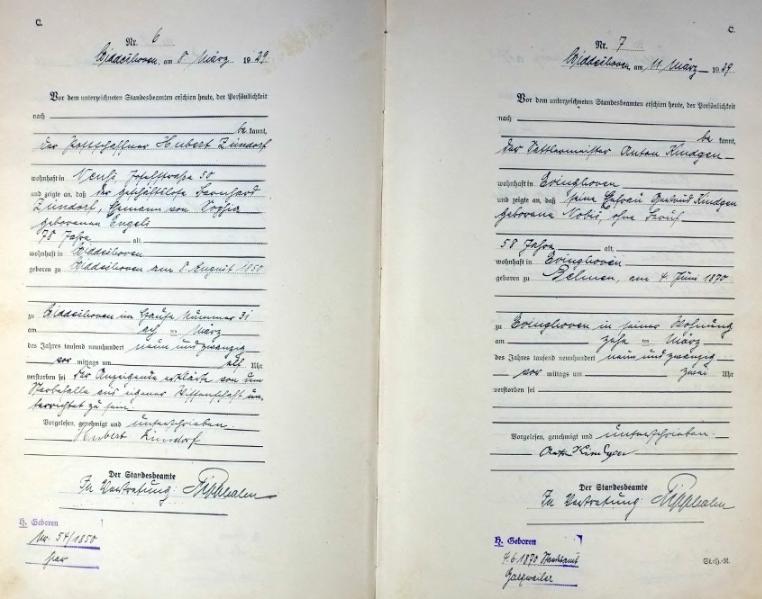 C.
Nr. 6
Widdeshoven, am 8 März 1929.
Vor dem unterzeichneten Standesbeamten erschien heute, der Persönlichkeit
nach
be kannt,
der Postschaffner Hubert Zündorf
wohnhaft in Neuß
und zeigte an, daß der geschäftslose Bernhard
Zündorf, Ehemann von Sophia
geborenen Engels
78 Jahre alt,
wohnhaft in Widdeshoven
geboren zu Widdeshoven am 8 August 1850
zu Widdeshoven im Hause Nummer 31
am acht ten März
des Jahres tausend neunhundert neun und zwanzig
vor mittags um elf Uhr
verstorben sei der Anzeigende erklärte von dem
Sterbefalle aus eigener Wissenschaft un
terrichtet zu sein
Vorgelesen, genehmigt und unterschrieben
Hubert Zündorf
Der Standesbeamte
In Vertretung:
H. Geboren
Nr. 54/1850
hier
C.
Nr. 7
Widdeshoven, am 11 März 1929
Vor dem unterzeichneten Standesbeamten erschien heute, der Persönlichkeit
nach
be kannt,
der Sattlermeister Anton Kindgen
wohnhaft in Evinghoven
und zeigte an, daß seine Ehefrau Gertrud Kindgen
geborene Nobis, ohne Beruf
58 Jahre alt,
wohnhaft in Evinghoven
geboren zu Belmen, am 4. Juni 1870
zu Evinghoven in seiner Wohnung
am zehn ten März
des Jahres tausend neunhundert neun und zwanzig
vor mittags um zwei Uhr
verstorben sei
Vorgelesen, genehmigt und unterschrieben
Kindgen
Der Standesbeamte
In Vertretung:
H. Geboren
4.6.1870 Standesamt
Garzweiler